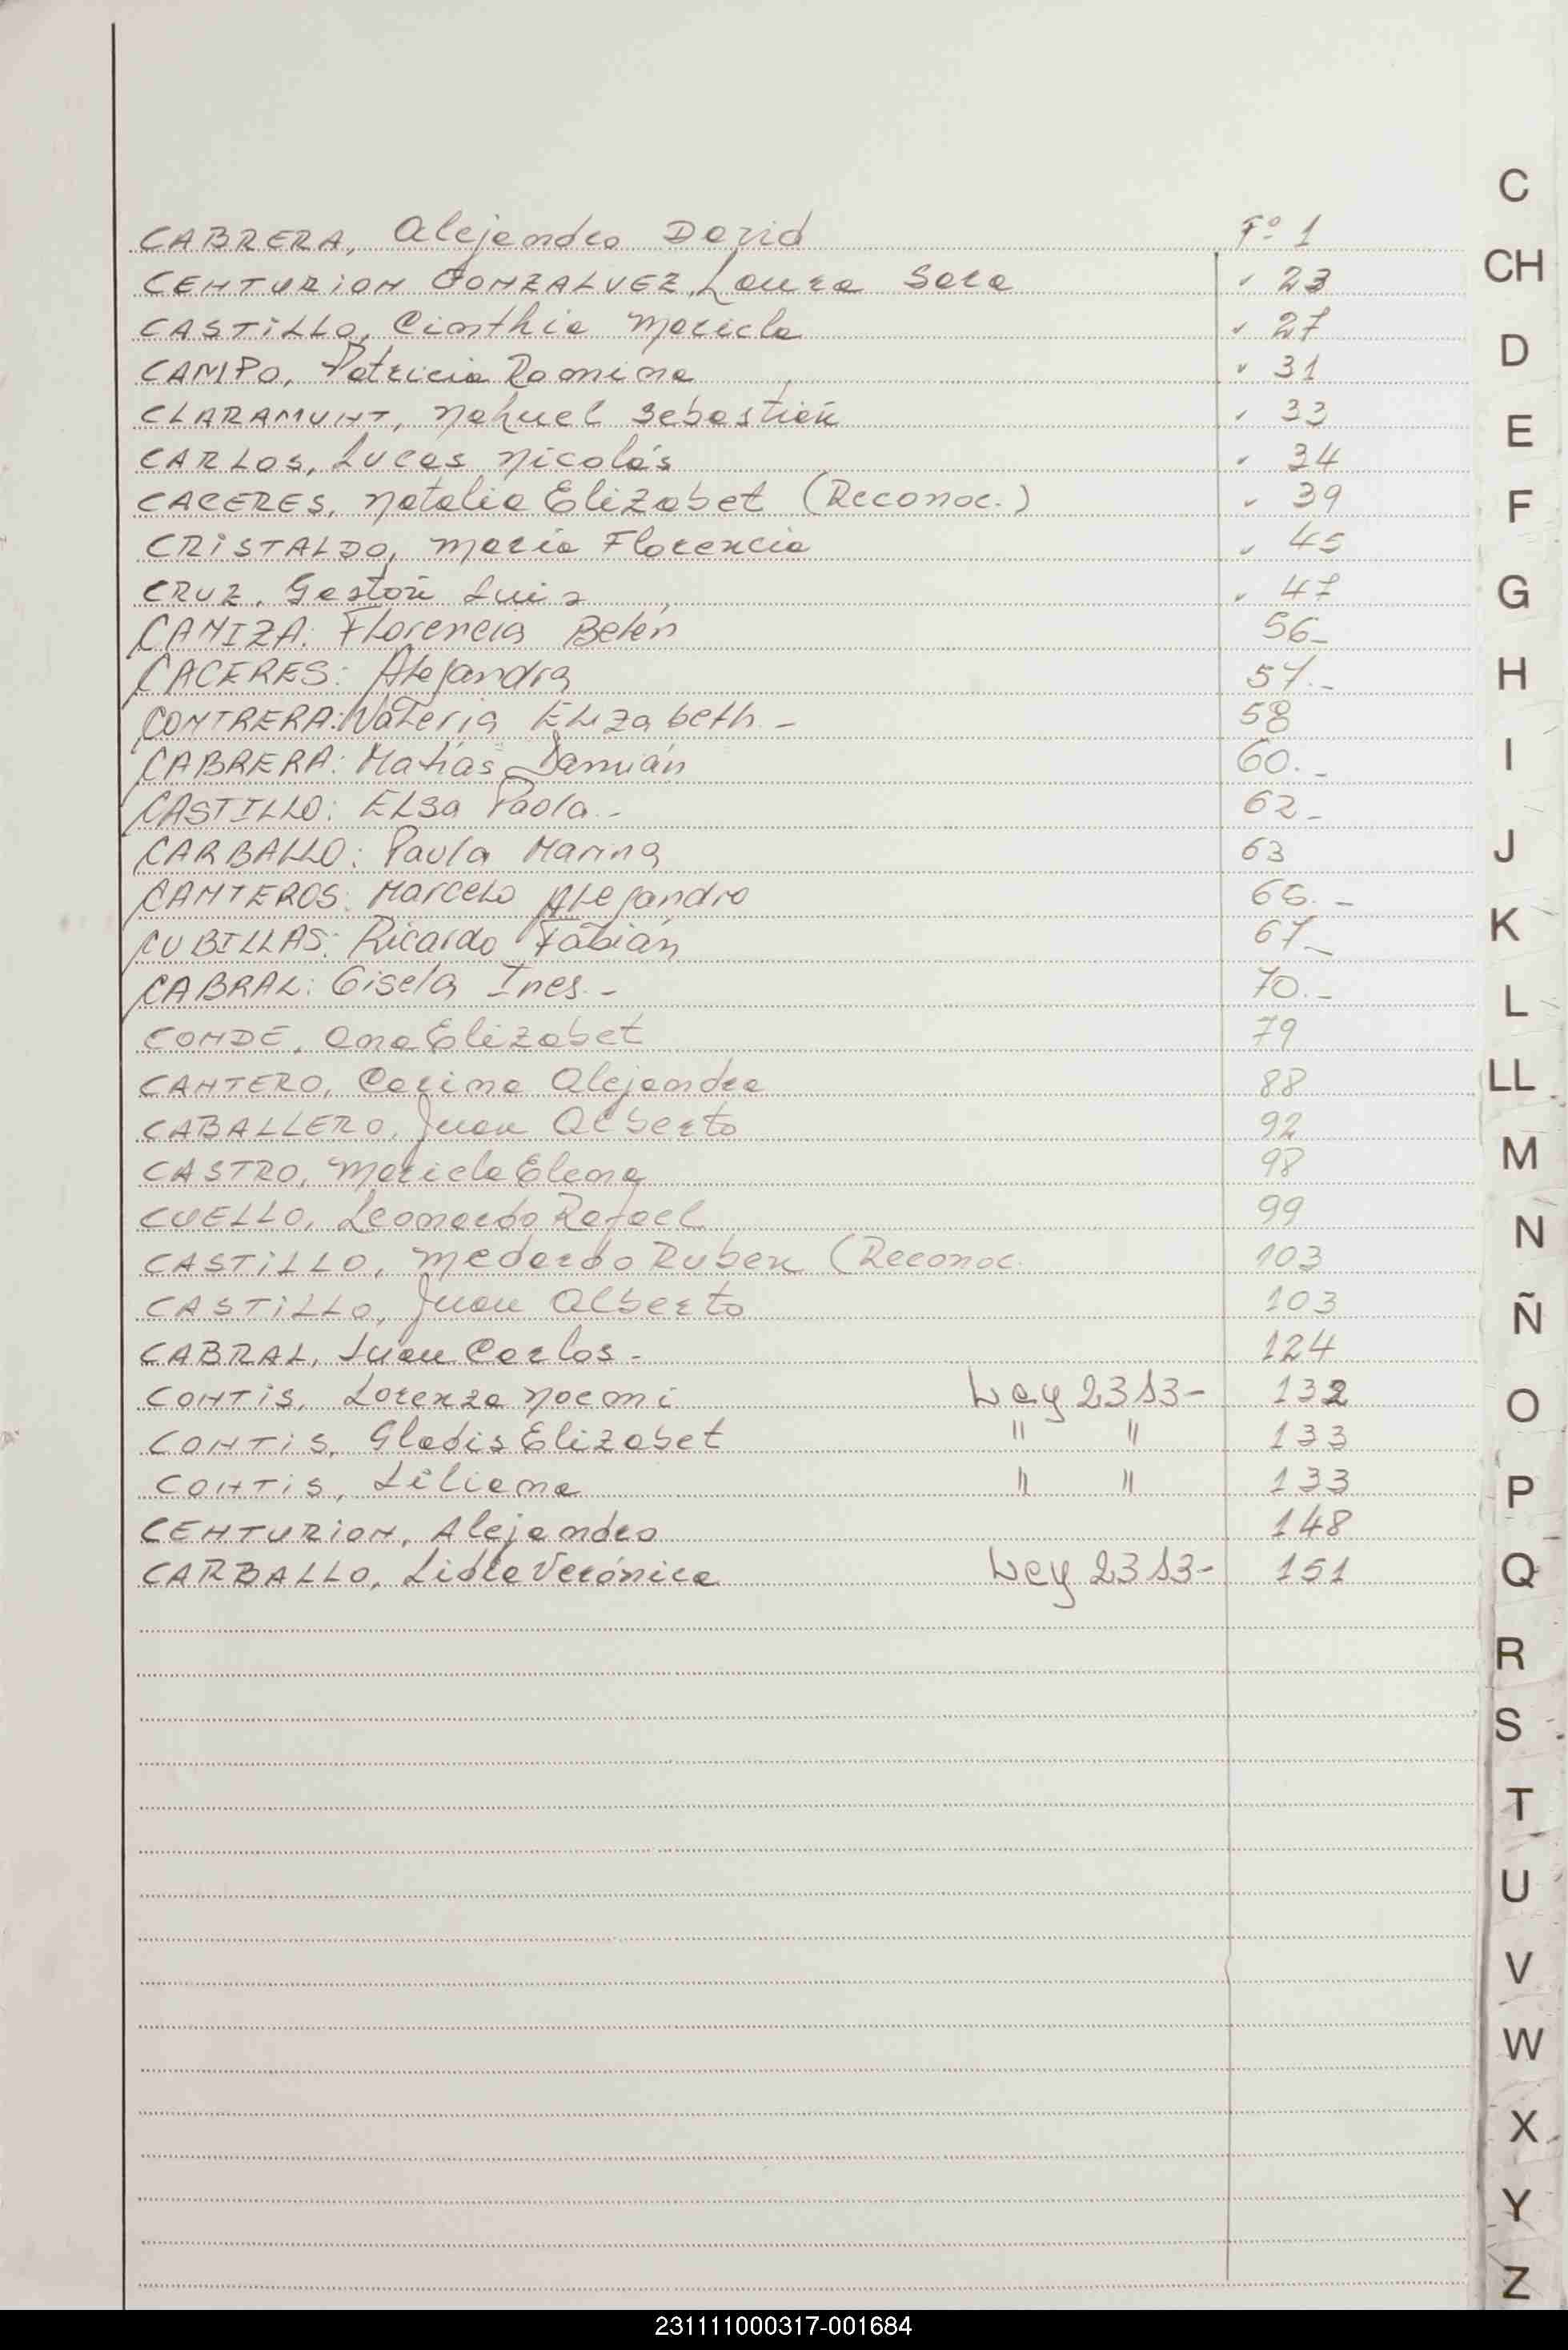 CABRERA, Alejandro David Fº 1
CENTURION GONZALVEZ, Laura Sara " 23
CASTiLLO, Cinthia Mariela " 27
CAMPO, Patricia Romina " 31
CLARAMUNT, Nahuel Sebastián " 33
CARLOS, Lucas Nicolás " 34
CACERES, Natalia Elizabet (Reconoc.) " 39
CRiSTALDO, María Florencia " 45
CRUZ, Gastón Luis " 47
CANIZA: Florencia Belén 56_
CACERES: Alejandra 57._
CONTRERA: Valeria Elizabeth - 58
CABRERA: Matías Damián 60._
CASTILLO: Elsa Paola.- 62_
CARBALLO: Paula Marina 63
CANTEROS: Marcelo Alejandro 66._
CUBILLAS: Ricardo Fabián 67_
CABRAL: Gisela Ines.- 70._
CONDE, Ana Elizabet 79
CANTERO, Carina Alejandra 88
CABALLERO, Juan Alberto 92
CASTRO, Mariela Elena 98
CUELLO, Leonardo Rafael 99
CASTiLLO, Medardo Ruben (Reconoc. 103
CASTiLLO, Juan Alberto 103
CABRAL, Juan Carlos - 124
CONTiS, Lorenza Noemi Ley 2313- 132
CONTiS, Gladis Elizabet " " 133
CONTiS, Liliana " " 133
CENTURiON, Alejandro 148
CARBALLO, Lidia Verónica Ley 2313- 151
C
CH
D
E
F
G
H
I
J
K
L
LL
M
N
Ñ
O
P
Q
R
S
T
U
V
W
X
Y
Z
231111000317-001684